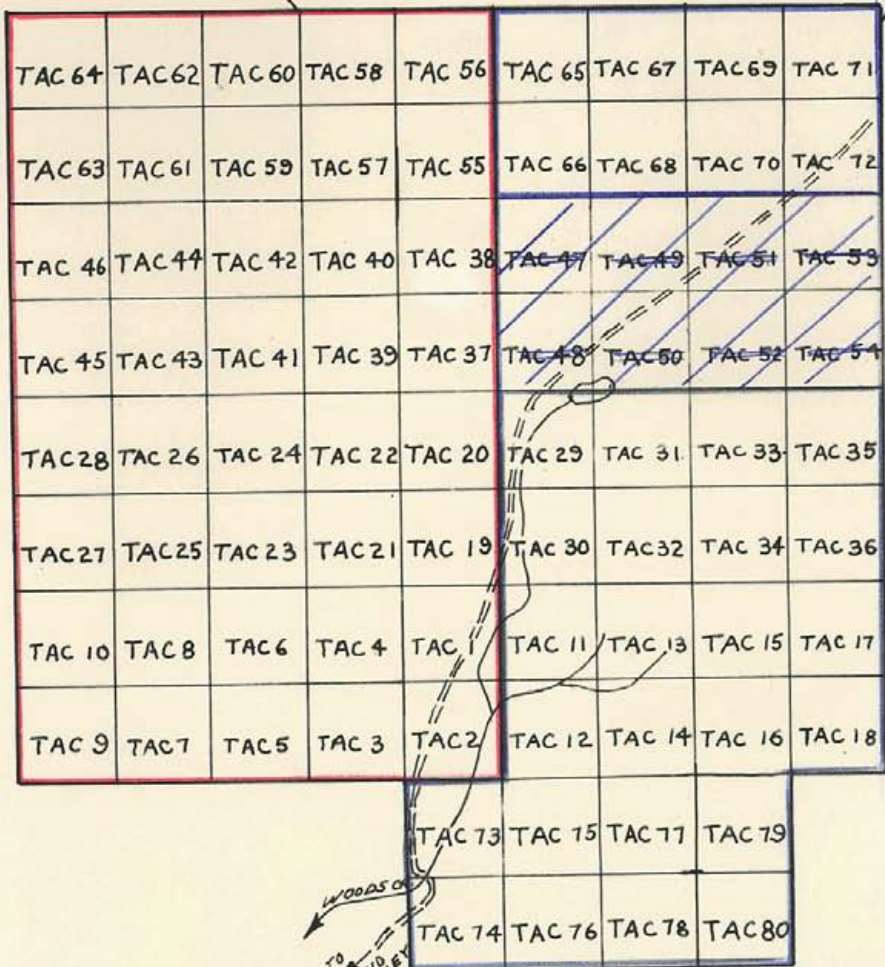 TAC 64 TAC 62 TAC 60 TAC 58 TAC 56 TAC 65 TAC 67 TAC 69 TAC 71
TAC 63 TAC 61 TAC 59 TAC 57 TAC 55 TAC 66 TAC 68 TAC 70 TAC 72
TAC 46 TAC 44 TAC 42 TAC 40 TAC 38 TAC 47 TAC 49 TAC 51 TAC 53
TAC 45 TAC 43 TAC 41 TAC 39 TAC 37 TAC 48 TAC 50 TAC 52 TAC 54
TAC 28 TAC 26 TAC 24 TAC 22 TAC 20 TAC 29 TAC 31 TAC 33 TAC 35
TAC 27 TAC 25 TAC 23 TAC 21 TAC 19 TAC 30 TAC 32 TAC 34 TAC 36
TAC 10 TAC 8 TAC 6 TAC 4 TAC 1 TAC 11 TAC 13 TAC 15 TAC 17
TAC 9 TAC 7 TAC 5 TAC 3 TAC 2 TAC 12 TAC 14 TAC 16 TAC 18
TAC 73 TAC 75 TAC 77 TAC 79
WOODS
TAC 74 TAC 76 TAC 78 TAC 80
TO